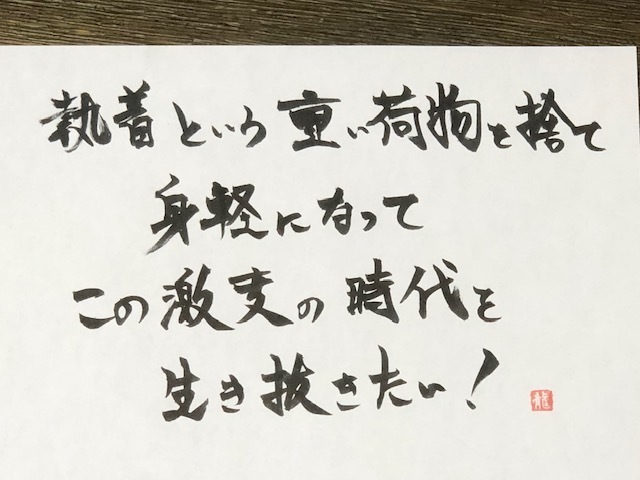 執着という重い荷物を捨て
身軽になって
この激変の時代を
生き抜きたい!
龍